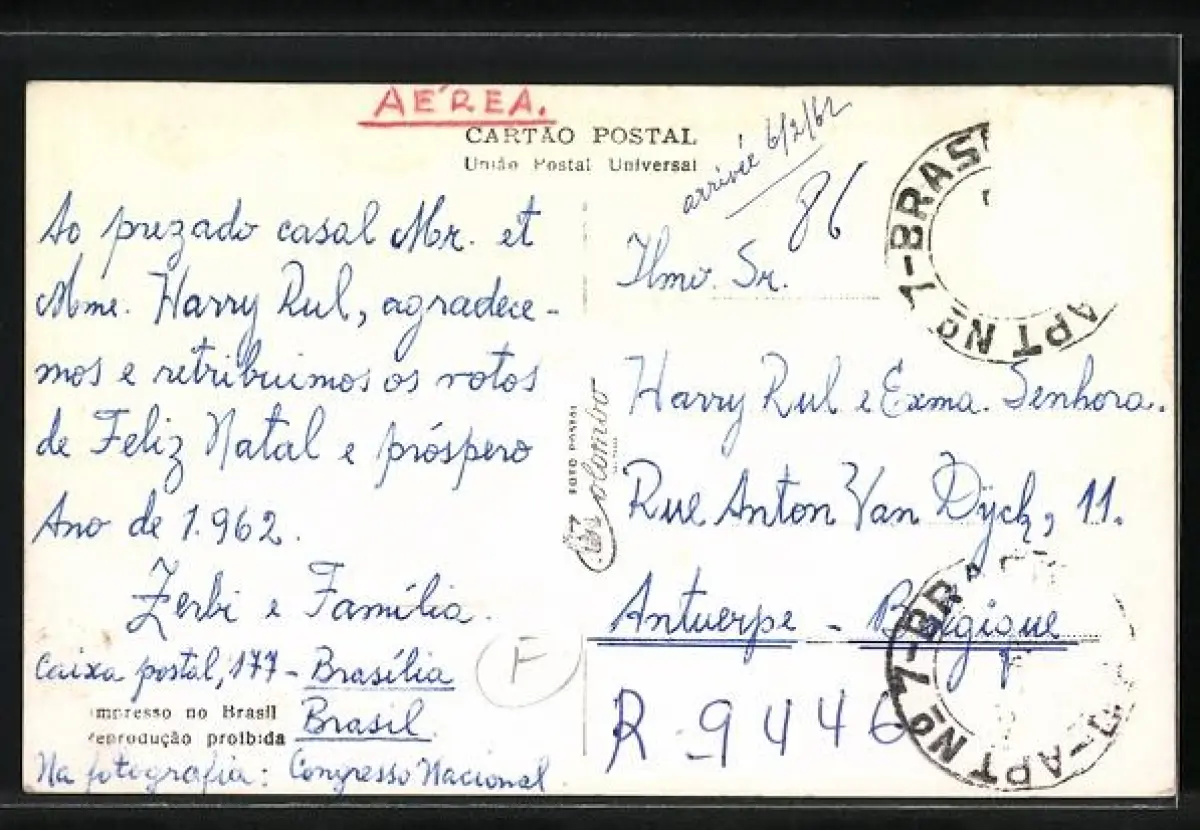 AÉREA.
CARTÃO POSTAL
União Postal Universal
arrivée 6/2/62
86
Ao prezado casal Mr. et
Mme. Harry Rul, agradece-
mos e retribuimos os votos
de Feliz Natal e próspero
Ano de 1.962.
Zerbi e Família.
Caixa postal, 177 - Brasília
Impresso no Brasil
Brasil.
Reprodução proibida
Na fotografia: Congresso Nacional.
F
FOTO POSTAL
Colombo
Ilmo. Sr.
Harry Rul e Exma. Senhora.
Rue Anton Van Dÿck, 11.
Antuerpe - Belgique
R 9446
APT Nº 7-BRAS
APT Nº 7-BRA